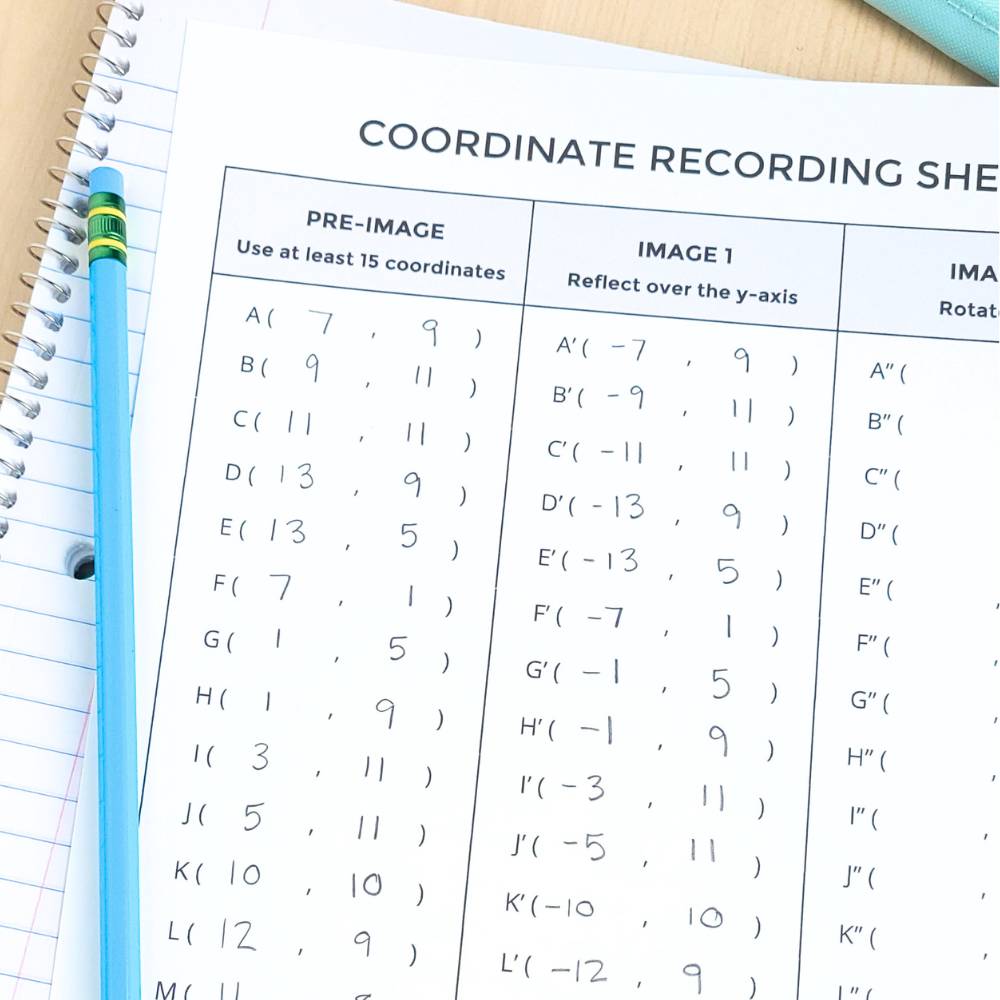 COORDINATE RECORDING SHE
PRE-IMAGE
Use at least 15 coordinates
IMAGE 1
Reflect over the y-axis
IMA
Rotat
A( 7 , 9 )
A'( -7 , 9 )
A"(
B( 9 , 11 )
B'( -9 , 11 )
B"(
C( 11 , 11 )
C'( -11 , 11 )
C"(
D( 13 , 9 )
D'( -13 , 9 )
D"(
E( 13 , 5 )
E'( -13 , 5 )
E"( ,
F( 7 , 1 )
F'( -7 , 1 )
F"( ,
G( 1 , 5 )
G'( -1 , 5 )
G"( ,
H( 1 , 9 )
H'( -1 , 9 )
H"( ,
I( 3 , 11 )
I'( -3 , 11 )
I"( ,
J( 5 , 11 )
J'( -5 , 11 )
J"( ,
K( 10 , 10 )
K'( -10 , 10 )
K"( ,
L( 12 , 9 )
L'( -12 , 9 )
M( 11